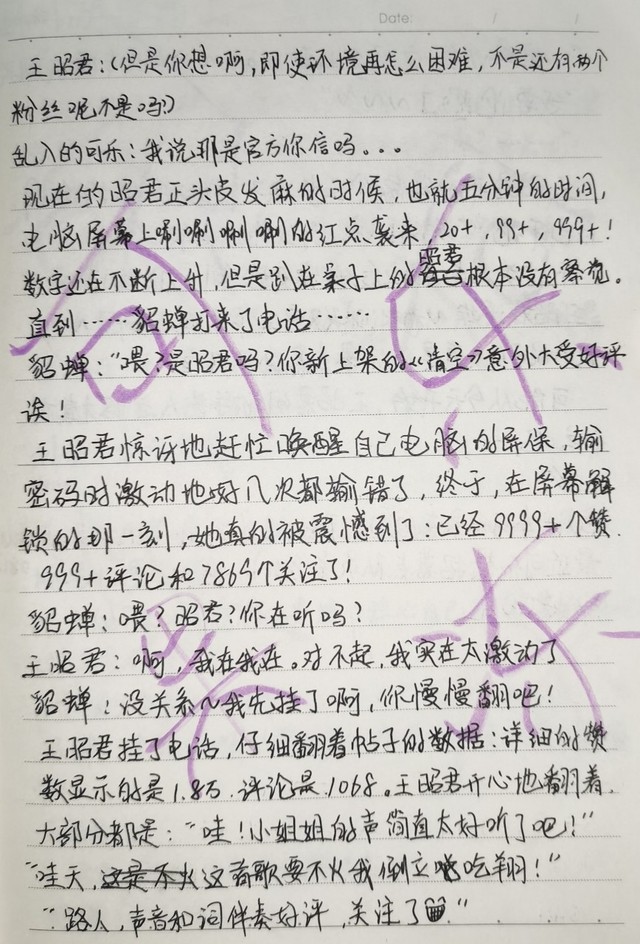 Date: / /
王昭君:(但是你想啊,即使环境再怎么困难,不是还有两个
粉丝呢不是吗?)
乱入的可乐:我说那是官方你信吗...
现在的昭君正头皮发麻的时候,也就五分钟的时间,
电脑屏幕上唰唰唰唰的红点袭来,20+,99+,999+!
数字还在不断上升,但是趴在桌子上的昭君根本没有察觉。
直到……貂蝉打来了电话……
貂蝉:“喂?是昭君吗?你新上架的《清空》意外大受好评
诶!
王昭君惊讶地赶忙唤醒自己电脑的屏保,输
密码时激动地好几次都输错了,终于,在屏幕解
锁的那一刻,她真的被震憾到了:已经9999+个赞.
999+评论和7869个关注了!
貂蝉:喂?昭君?你在听吗?
王昭君:啊,我在我在。对不起,我实在太激动了
貂蝉:没关系~我先挂了啊,你慢慢翻吧!
王昭君挂了电话,仔细翻着帖子的数据:详细的赞
数显示的是1.8万.评论是1068。王昭君开心地翻着.
大部分都是:“哇!小姐姐的声简直太好听了吧!”
“哇天,这是不火这首歌要不火我倒立吃翔!”
“路人,声音和词伴奏好评,关注了”